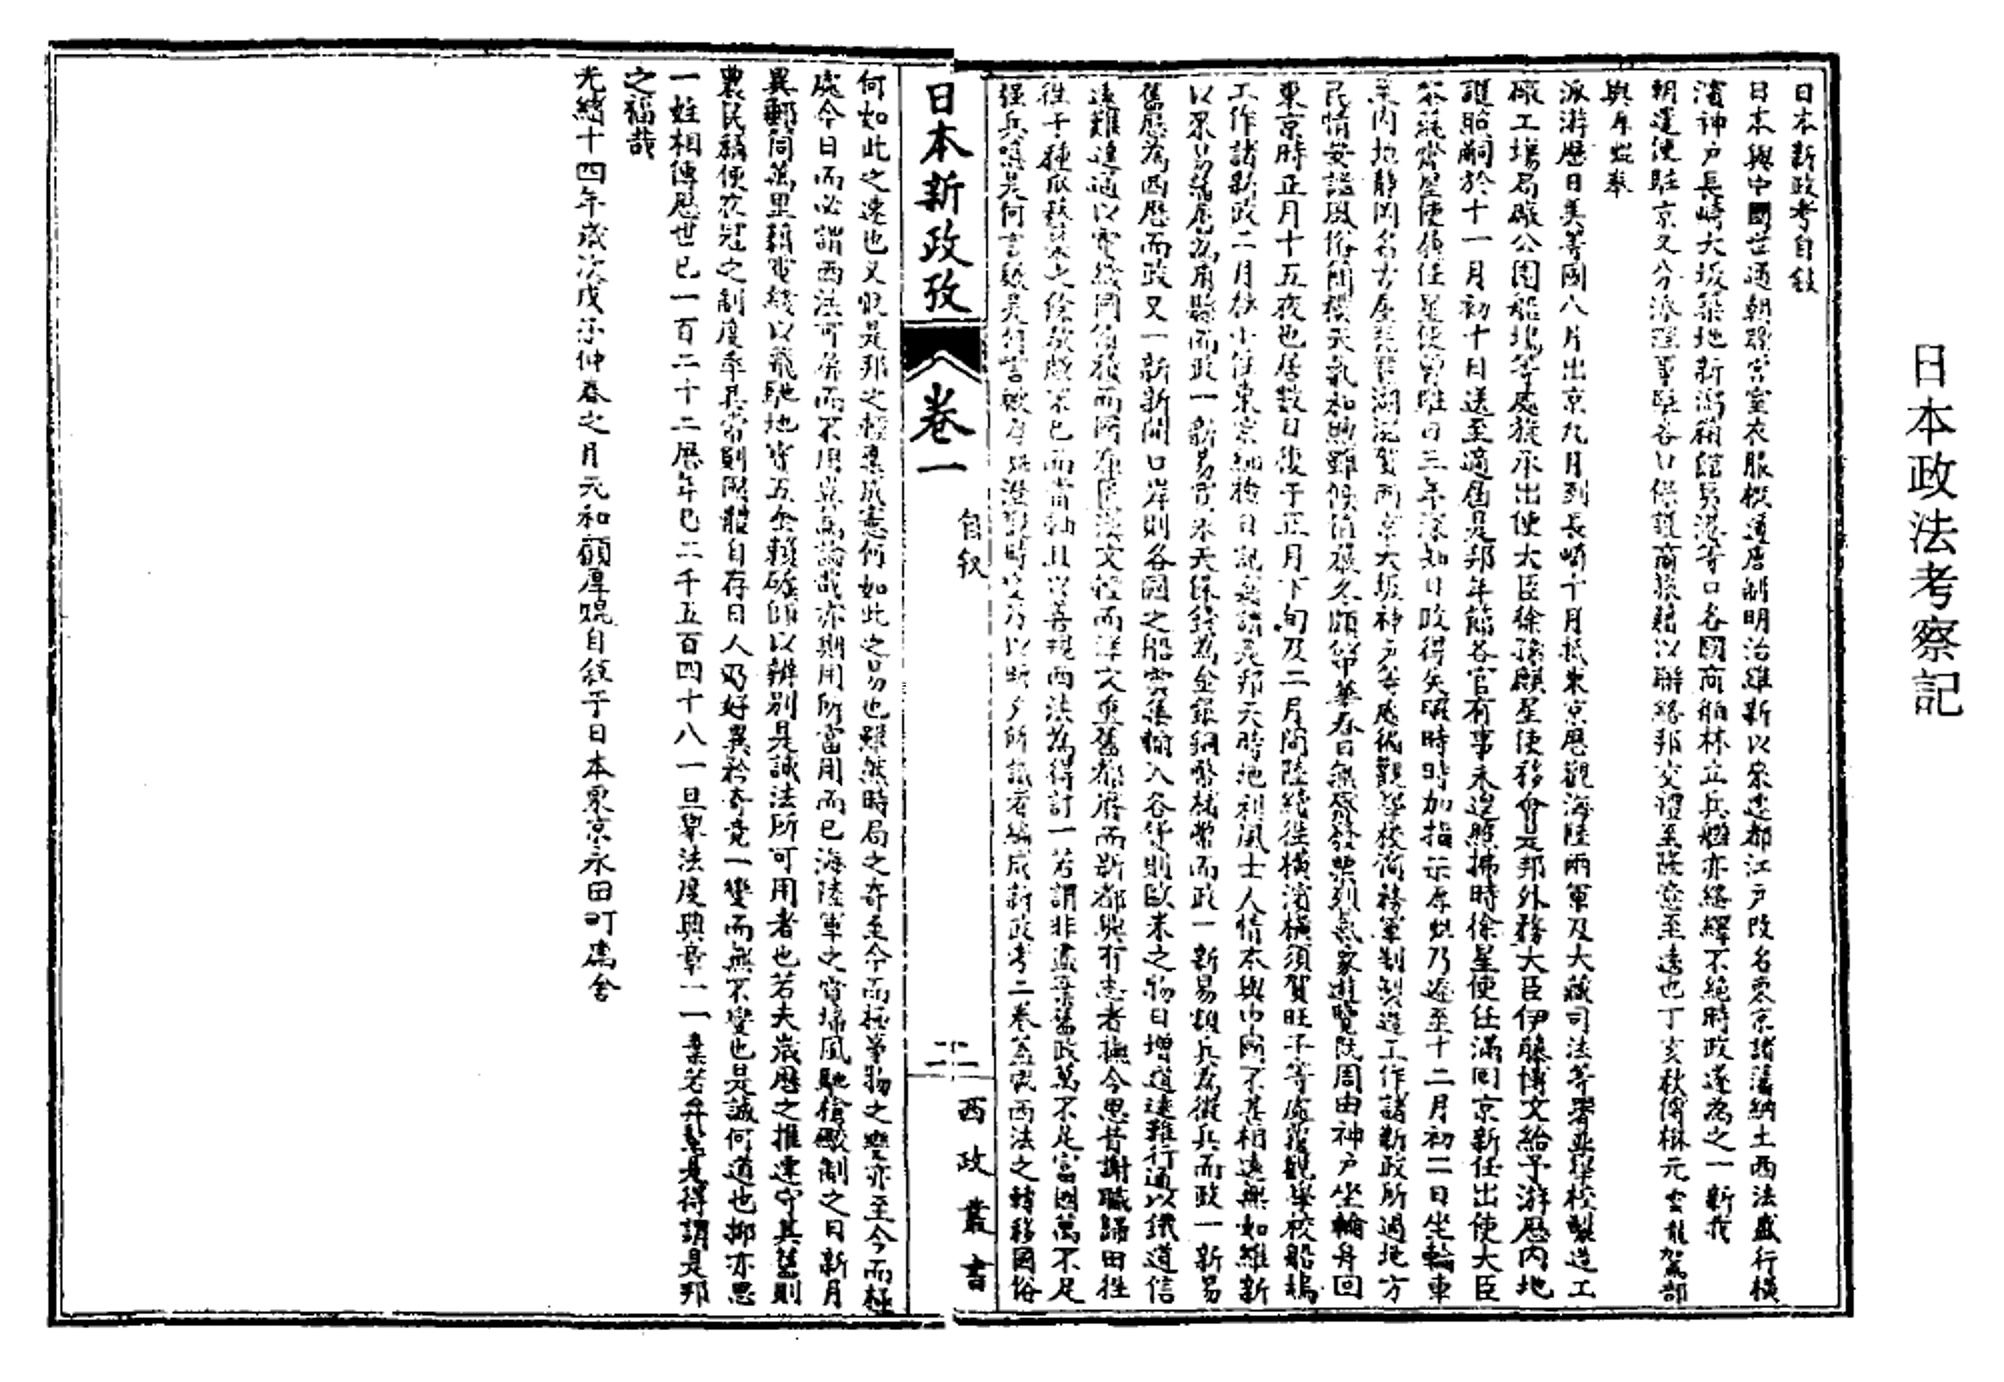 日本政法考察記
日本新政考自敘
日本與中國世通朝聘宮室衣服概遵唐制明治維新以來建都江戶改名東京諸藩納土西法盛行橫
濱神戶長崎大坂築地新潟箱館夷港等口各國商舶林立兵艦亦絡繹不絕時政遂為之一新我
朝遣使駐京又分派理事駐各口保護商旅藉以聯絡邦交謂至隆意至遠也丁亥秋傅楙元雲龍駕部
與厚焜奉
派游歷日美等國八月出京九月到長崎十月抵東京歷觀海陸兩軍及大藏司法等署並學校製造工
廠工場局廠公園船塢等處旋承出使大臣徐孫麒星使移會是邦外務大臣伊藤博文給予游歷內地
護照嗣於十一月初十日送至適屆是邦年節各官有事未遑照拂時徐星使任滿回京新任出使大臣
黎蒓齋星使履任星使曾駐日三年深知日政得失暇時時加指示厚焜乃遲至十二月初二日坐輪車
至內地靜岡名古屋琵琶湖滋賀西京大坂神戶等處徧觀學校商務軍制製造工作諸新政所過地方
民情安謐風俗簡樸天氣和煦雖候值嚴冬頗似中華春日無觱發栗烈氣象遊覽既周由神戶坐輪舟回
東京時正月十五夜也居數日復于正月下旬及二月間陸續往橫濱橫須賀旺子等處覆觀學校船塢
工作諸新政二月杪小住東京細檢日記竊謂是邦天時地利風土人情本與中國不甚相遠無如維新
以來易藩屏為府縣而政一新易寬永天保錢為金銀銅幣楮幣而政一新易額兵為徵兵而政一新易
舊歷為西歷而政又一新新開口岸則各國之船雲集輸入各貨則歐米之物日增道遠難行通以鐵道信
遠難達通以電線同伯校而兩廣臣漢文輕而洋文重舊都廢而新都興有志者撫今思昔謝職歸田往
往于種瓜藝菊之餘欷歔不已而當軸且以善規西法為得計一若謂非盡棄舊政萬不足富國萬不足
强兵噫是何言歟是何言歟厚焜澄觀時變乃以昕夕所識者編成新政考二卷蓋觀西法之轉移國俗
日本新政攷
卷一
自敘
二
西政叢書
何如此之速也又觀是邦之輕棄成憲何如此之易也雖然時局之奇至今而極事物之變亦至今而極
處今日而必謂西法可屏而不用豈篤論哉亦期用所當用而已海陸軍之當場風馳槍礮制之日新月
異郵筒萬里藉電綫以飛馳地寶五金賴礦師以辨別是誠法所可用者也若夫歲歷之推遷守其舊則
農民稱便衣冠之制度率其常則國體自存日人乃好異矜奇竟一變而無不變也是誠何道也抑亦思
一姓相傳歷世已一百二十二歷年已二千五百四十八一旦舉法度典章一一棄若弁髦是得謂是邦
之福哉
光緒十四年歲次戊子仲春之月元和顧厚焜自敘于日本東京永田町寓舍